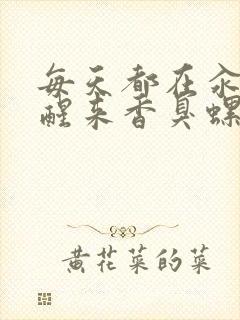 每天都在汆
醒来香臭螺
黄花菜的菜